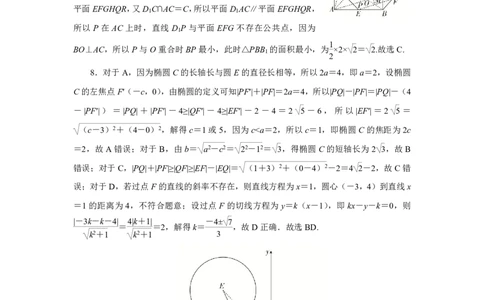 平面 EFGHQR,又 D₁C∩AC=C,所以平面 D₁AC∥平面 EFGHQR,
所以 P 在 AC 上时,直线 D₁P 与平面 EFG 不存在公共点,因为
E B
BO⊥AC,所以 P 与 O 重合时 BP 最小,此时△PBB₁ 的面积最小,为\frac{1}{2}×2×√2=√2.故选C.
8.对于 A,因为椭圆 C 的长轴长与圆 E 的直径长相等,所以 2a=4,即 a=2,设椭圆
C 的左焦点 F′(-c,0),由椭圆的定义可知|PF′|+|PF|=2a=4,所以|PQ|-|PF|=|PQ|-(4
-|PF′|)=|PQ|+|PF′|-4≥|QF′|-4≥|EF′|-2-4=2√5-6,所以|EF′|=2√5=
√((c-3)²+(4-0)²),解得 c=1 或 5,因为 c<a=2,所以 c=1,即椭圆 C 的焦距为 2c
=2,故 A 错误;对于 B,由 b=√(a²-c²)=√(2²-1²)=√3,得椭圆 C 的短轴长为 2√3,故 B
错误;对于 C,|PQ|+|PF|≥|QF|≥|EF|-|EQ|=√((1+3)²+(0-4)²)-2=4√2-2,故 C 错
误;对于 D,若过点 F 的直线的斜率不存在,则直线方程为 x=1,圆心(-3,4)到直线 x
=1 的距离为 4,不符合题意;设过点 F 的切线方程为 y=k(x-1),即 kx-y-k=0,则
\frac{|-3k-k-4|}{√(k²+1)}=\frac{4|k+1|}{√(k²+1)}=2,解得 k=\frac{-4±√7}{3},故 D 正确.故选 BD.
y
E